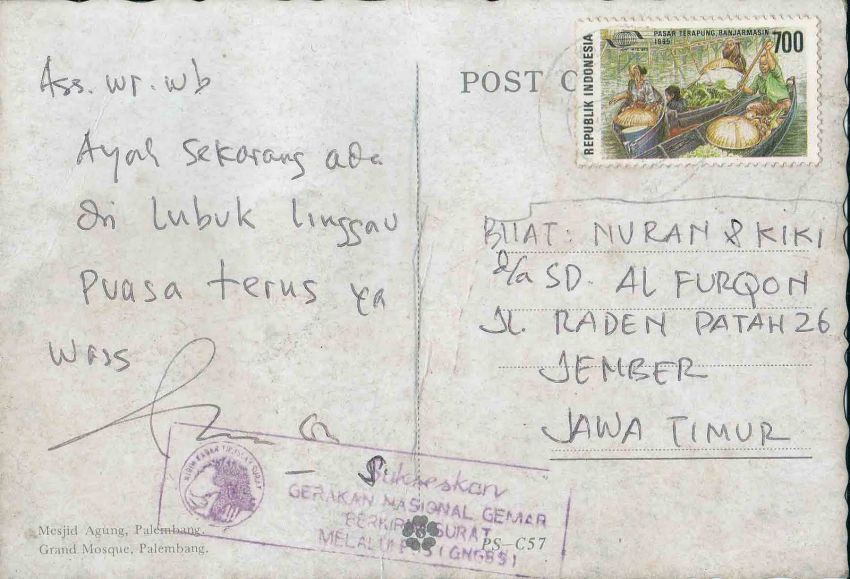 Ass. wr. wb
Ayah sekarang ada
di Lubuk linggau
Puasa terus ya
Wass
Mesjid Agung, Palembang.
Grand Mosque, Palembang.
POST C
REPUBLIK INDONESIA
PASAR TERAPUNG, BANJARMASIN
1995
700
BUAT: NURAN & KIKI
d/a SD. AL FURQON
JL. RADEN PATAH 26
JEMBER
JAWA TIMUR
Sukseskan
GERAKAN NASIONAL GEMAR
BERKIRIM SURAT
MELALUI
PS—C57